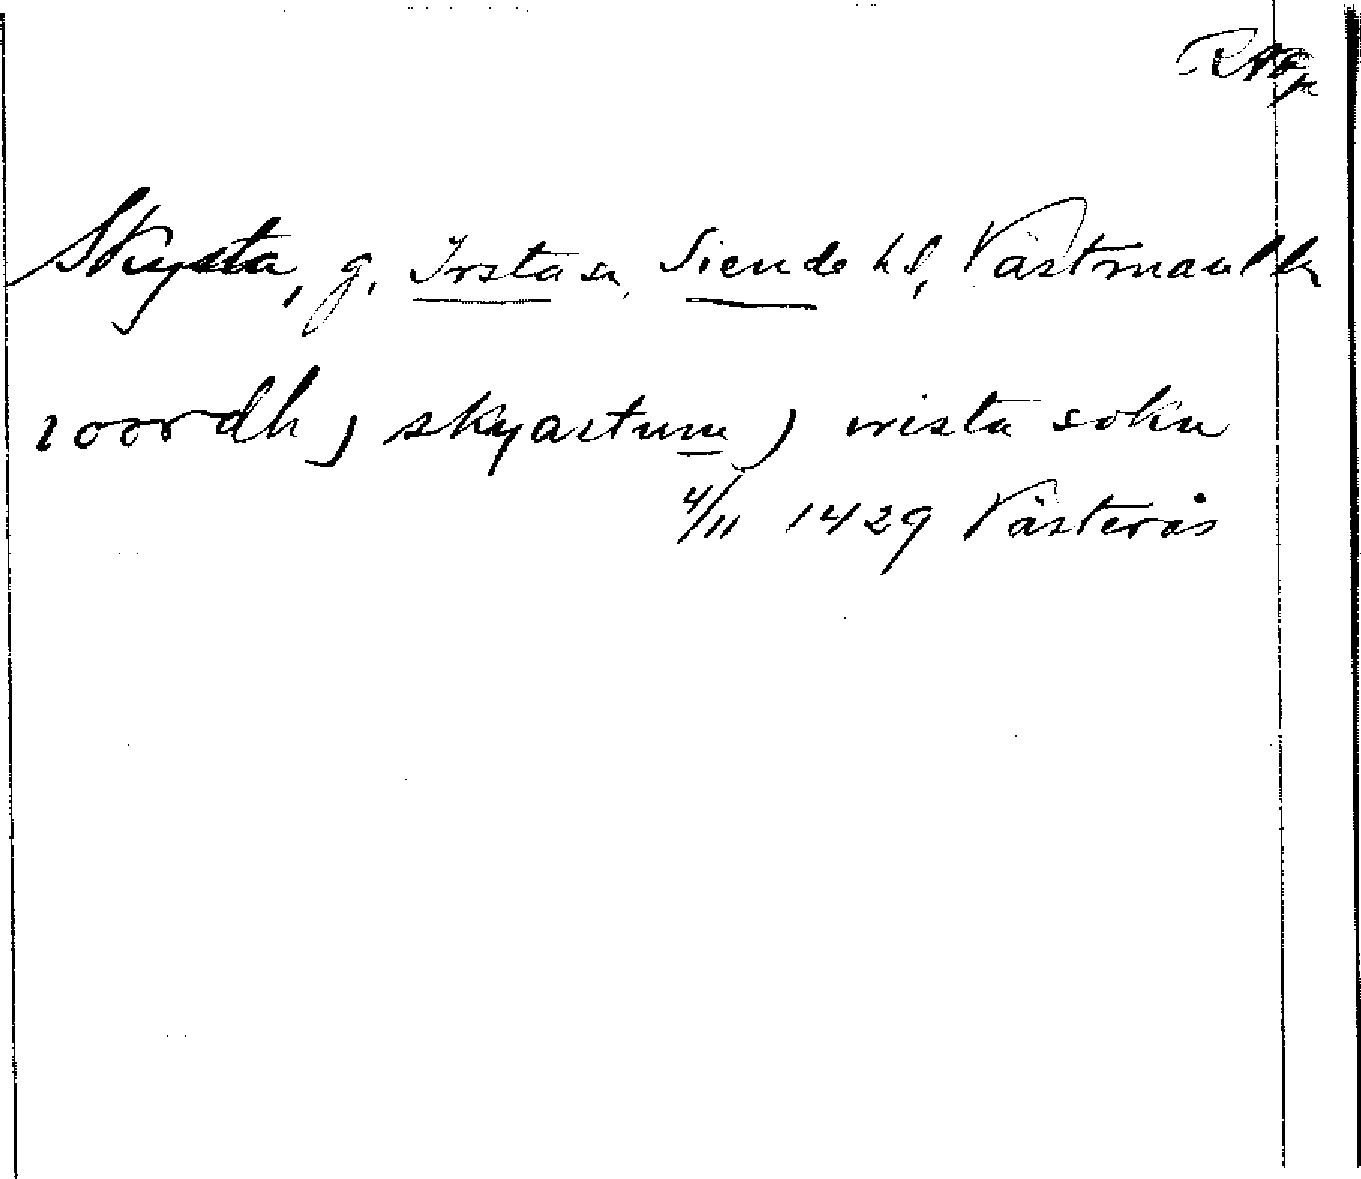 RAp
Skysta, g. Irsta sn, Siende hd, Västmanl. l.
i oordh j skyastum j irista sokn
4/11 1429 Västerås